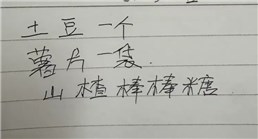 土豆一个
薯片一袋
山楂棒棒糖